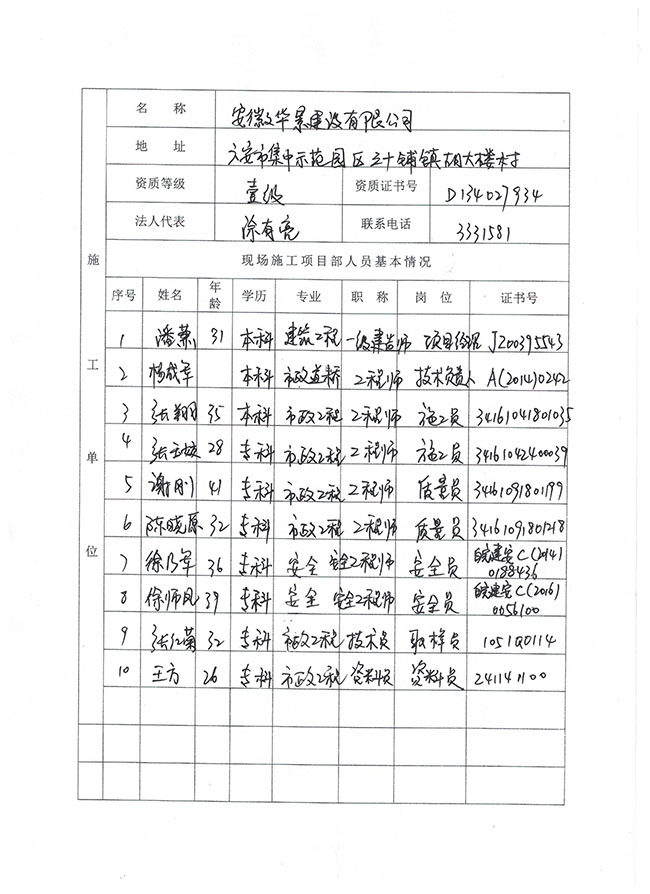 名 称 安徽华景建设有限公司
地 址 六安市集中示范园区三十铺镇胡大楼村
资质等级 壹级 资质证书号 D134027934
法人代表 涂有亮 联系电话 3331581
施工单位
现场施工项目部人员基本情况
序号 姓名 年龄 学历 专业 职 称 岗 位 证书号
1 潘荣 31 本科 建筑工程 一级建造师 项目经理 J200395543
2 杨成军 本科 市政道桥 工程师 技术负责人 A(2014)0242
3 张翔 35 本科 市政工程 工程师 施工员 34161041801035
4 张玉 28 专科 市政工程 工程师 施工员 34161042400039
5 谢刚 41 专科 市政工程 工程师 质量员 34161091801199
6 陈晓原 32 专科 市政工程 工程师 质量员 34161091801218
7 徐乃军 36 专科 安全 安全工程师 安全员 皖建安C(2014)
0188436
8 徐师凤 39 专科 安全 安全工程师 安全员 皖建安C(2016)
0056100
9 张红菊 32 专科 市政工程 技术员 取样员 10510114
10 王方 26 专科 市政工程 资料员 资料员 241141100